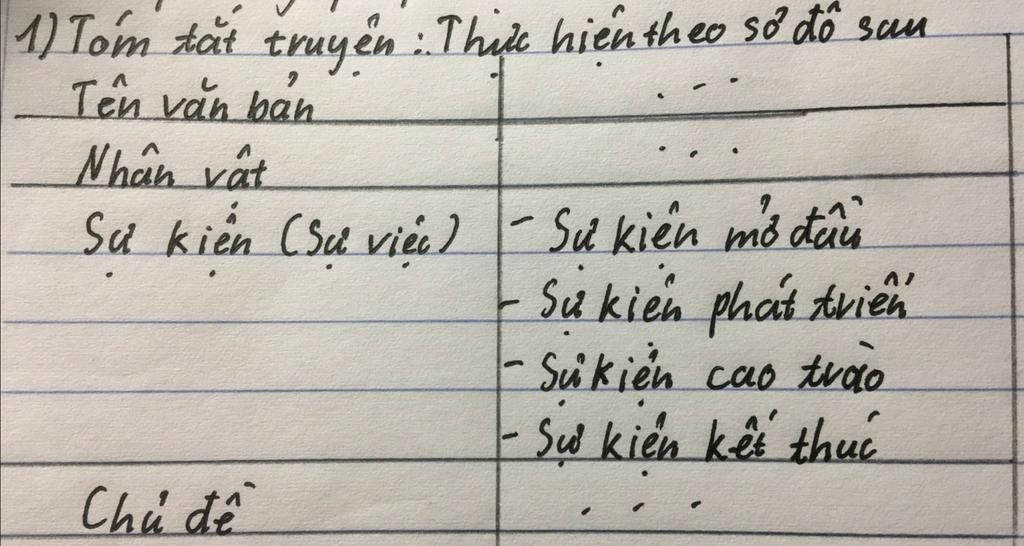 1) Tóm tắt truyện : Thực hiện theo sơ đồ sau
Tên văn bản . - .
Nhân vật . . .
Sự kiện (Sự việc) - Sự kiện mở đầu
- Sự kiện phát triển
- Sự kiện cao trào
- Sự kiện kết thúc
Chủ đề . . .